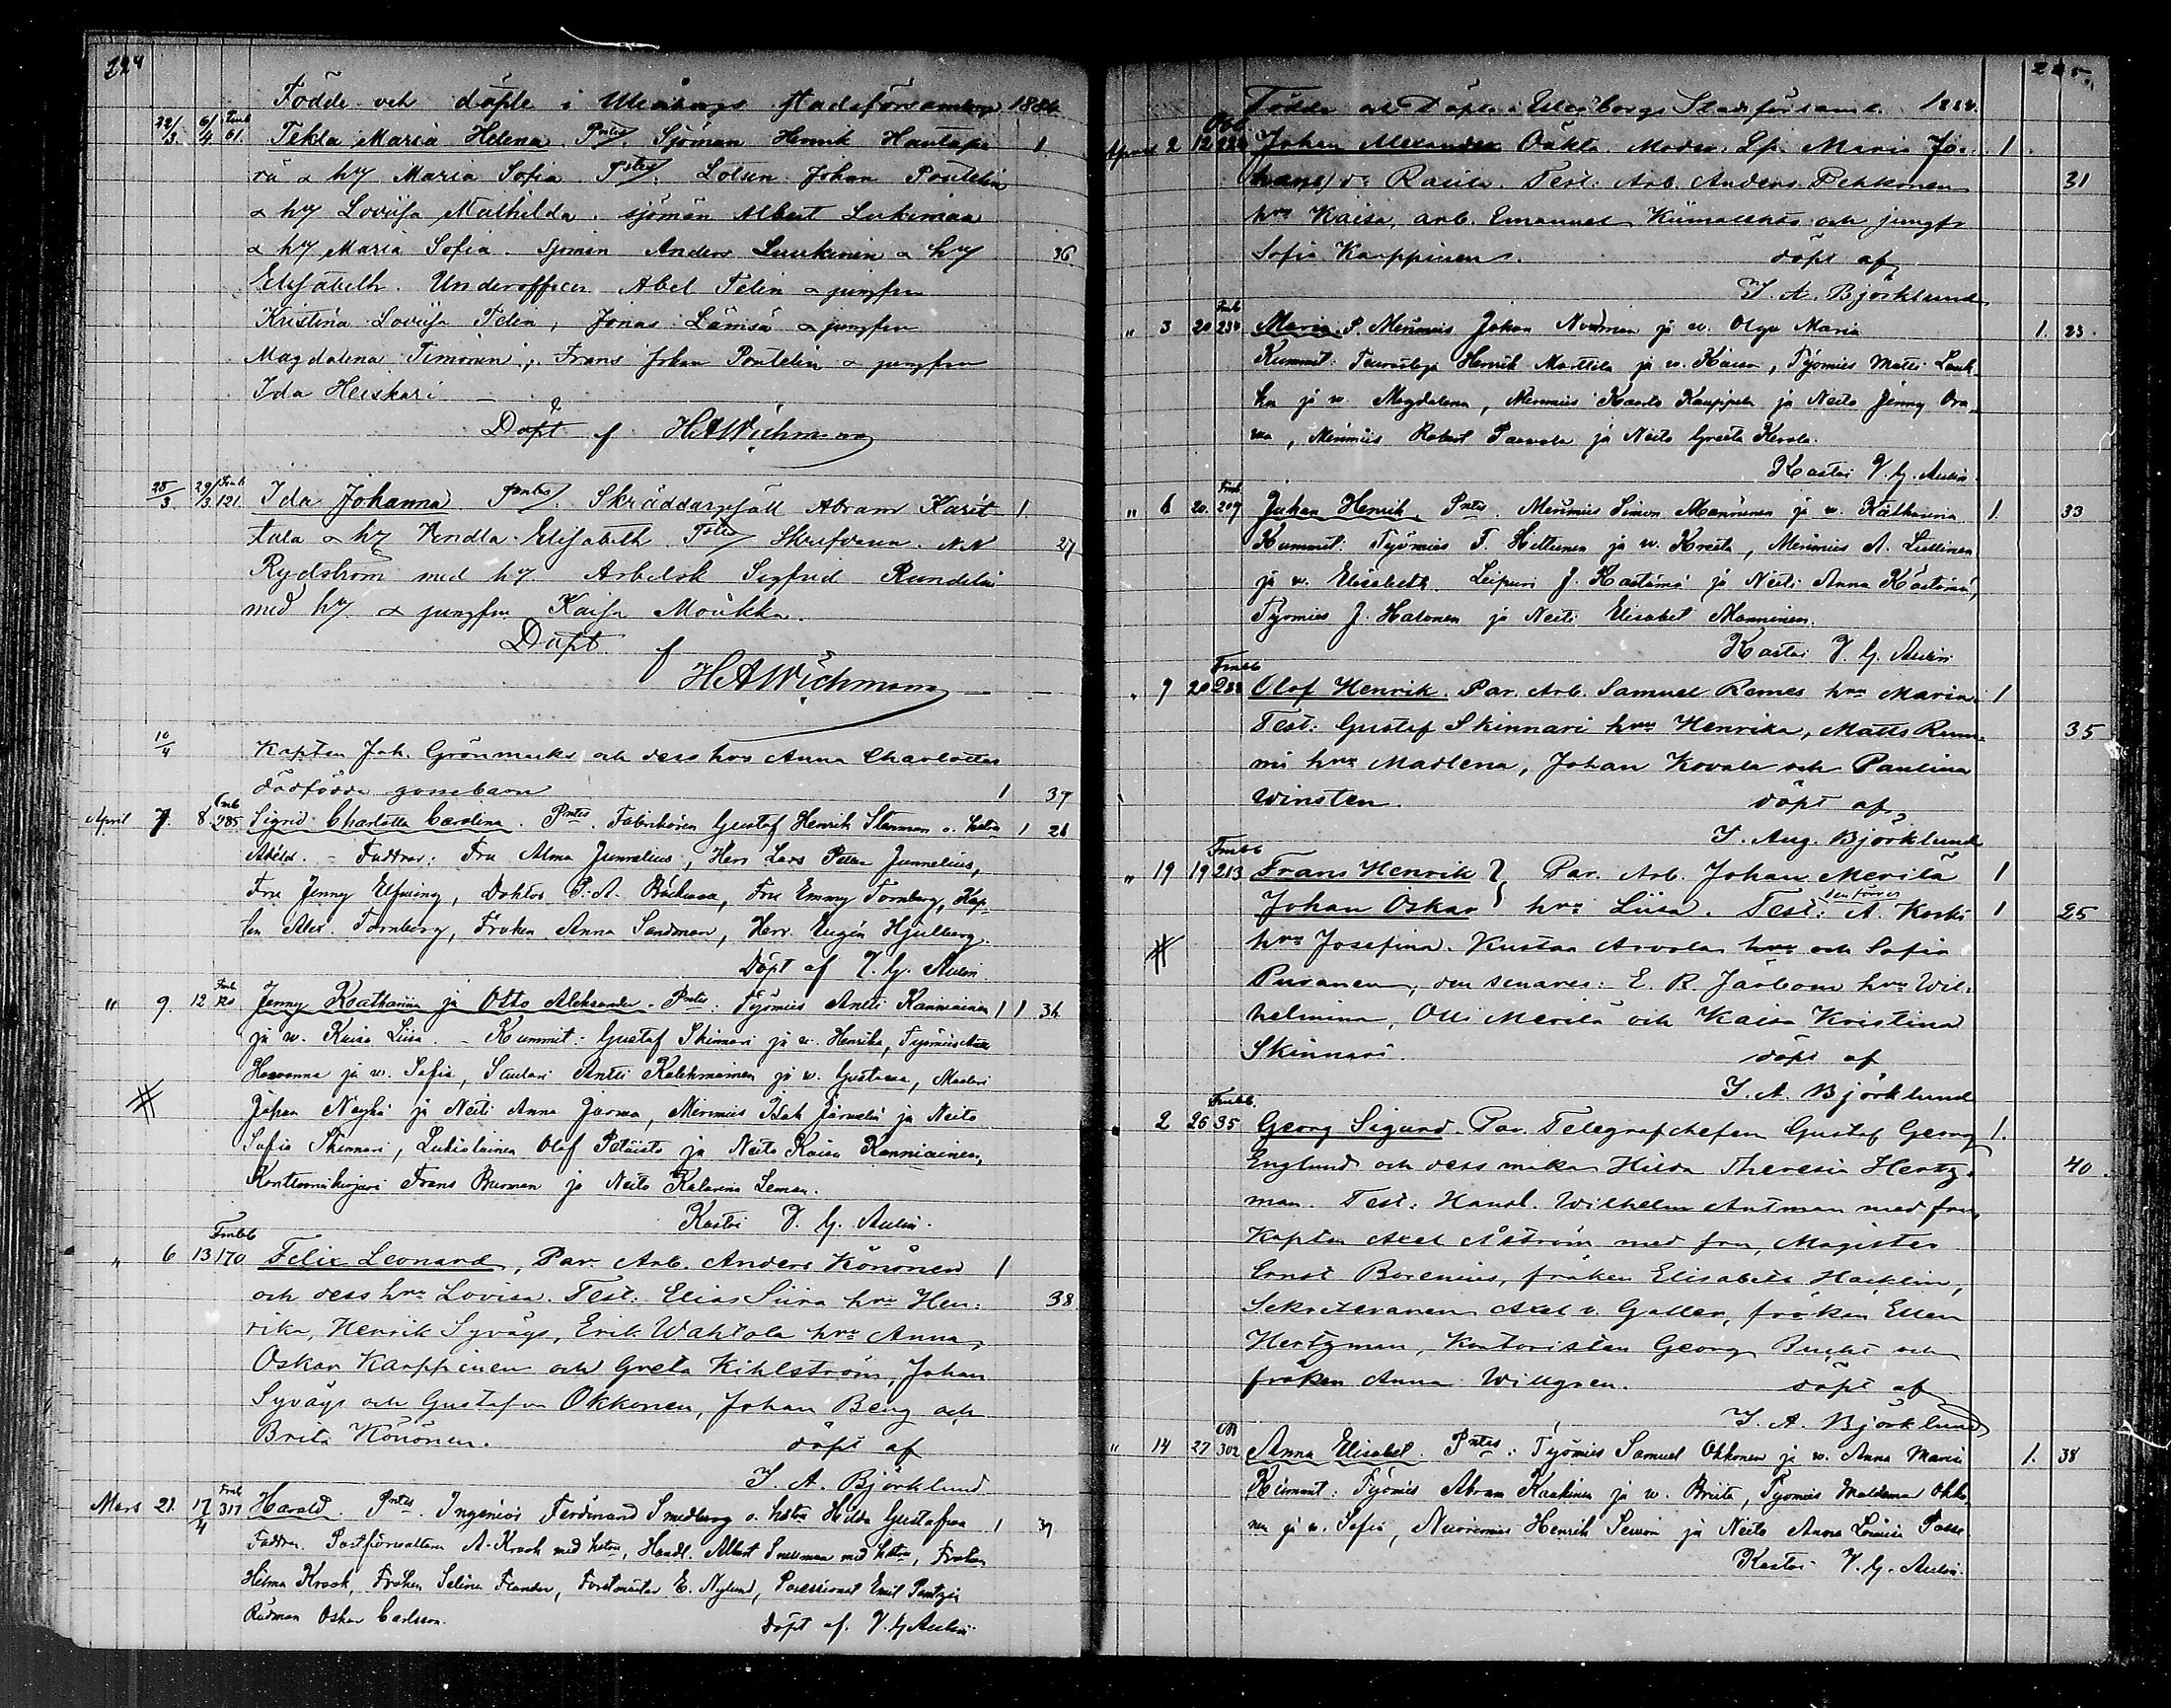 224
Födde och döpte i Uleåborgs Stadsförsamling 1884.
22/3. 6/4 Fmb 61. Tekla Maria Helena. Pntes. Sjöman Henrik Hautajä- 1.
vä & h. Maria Sofia Tstes: Lotsen Johan Poutelin
& h. Lovisa Mathilda. sjöman Albert Lukinmaa
& h. Maria Sofia. Sjöman Anders Luukinen & h. 36.
Elisabeth. Underofficer Abel Felin & jungfru
Kristina Lovisa Felin, Jonas Lämsä & jungfru
Magdalena Timonen, Frans Johan Poutelin & jungfru
Ida Heiskari
Döpt af HAWichmann
25/3. 29/3 Fmb 121. Ida Johanna Pntes. Skräddaregesäll Abram Karit- 1.
tula & h. Vendla Elisabeth Tstes Skrifvaren N.N 27
Rydström med h. Arbetsk Sigfrid Rundelin
med h. & jungfru Kaisa Moukka.
Döpt af
HAWichmann
10/4 Kapten Joh. Grönmarks och dess hru Anna Charlottas
dödfödda gossebarn 1 37
April 7. 8. Fmb 285 Sigrid Charlotta Carolina. Pntes. Fabrikören Gustaf Henrik Stenman o. hstru 1 26
Adéle. - Faddrar: Fru Alma Junnelius, Herr Lars Petter Junnelius,
Fru Jenny Elfving, Doktor P. A. Bäckman, Fru Emmy Tornberg, Kap-
ten Alex. Tornberg, Fröken Anna Sandman, Herr Eugén Hjulberg.
Döpt af V. G. Aulin
" 9. 12 Fmb 120 Jenny Katharina ja Otto Aleksander. Pntes: Työmies Antti Kanniainen 1 1 36
ja v. Kaisa Liisa. - Kummit: Gustaf Skinnari ja v. Henrika, Työmies
Hosionna ja v. Sofia, Seulari Antti Kalehmainen ja v. Gustava, Maalari
# Johan Nayhä ja Neiti Anna Juoma, Merimies Isak Järvelin ja Neito
Sofia Skinnari, Lukiolainen Olof Petäistö ja Neito Kaisa Kanniainen,
Konttoorikirjuri Frans Burman ja Neito Katarina Leman.
Kastoi V. G. Aulin.
" 6 13 Fmbb 170 Felix Leonard, Par. Arb. Anders Könönen 1
och dess hru Lovisa. Test: Elias Siira hru Hen- 38
rika, Henrik Syväys, Erik Wahtola hru Anna,
Oskar Karppinen och Greta Kihlström, Johan
Syväys och Gustafva Okkonen, Johan Berg och
Brita Könönen. döpt af
I. A. Björklund
Mars 21. 17/4 Fmb 317 Harald. Pntes. Ingeniör Ferdinand Smedberg o. hstru Hilda Gustafva 1 37
Faddrar. Postförvaltaren A. Krook med hstru, Handl. Albert Snellman med hstru, Fröken
Hilma Krook, Fröken Selina Flander, Forstmästar E. Nylund, Possessionat Emil Pentzin
Rådman Oskar Carlsson. Döpt af. V. G. Aulin
225.
Födda och Döpta i Uleåborgs Stadsförsaml. 1884.
April 2 12 Obb 226 Johan Alexander Oäkta. Moder: Lp. Maria Jo- 1.
hans/dr Rasila. Test: Arb. Anders Pehkonen 31
hru Kaisa, arb. Emanuel Kiimalehto och jungfr
Sofia Karppinen. döpt af
I. A. Björklund
" 3 20 Fmb 234 Maria. P. Merimies Johan Nurman ja v. Olga Maria 1. 23.
Kummit: Teurastaja Henrik Marttila ja v. Kaisa, Työmies Matti Lauk-
ka ja v. Magdalena, Merimies Kaarlo Kauppila ja Neito Jenny Ora-
wa, Merimies Robert Paavola ja Neito Greeta Kerola.
Kastoi V. G. Aulin.
" 6 20. Fmb 209 Juhan Henrik. Pntes. Merimies Simon Manninen ja v. Katharina 1. 33
Kummit: Työmies T. Hiltunen ja v. Kreeta, Merimies A. Lullinen
ja v. Elisabeth. Leipuri J. Kastämä ja Neiti Anna Kästämä,
Työmies J. Halonen ja Neiti Elisabet Manninen.
Kastoi V. G. Aulin
" 9 20 Fmbb 288 Olof Henrik. Par. Arb. Samuel Remes hru Maria. 1
Test: Gustaf Skinnari hru Henrika, Matts Rum- 35
mi hru Madlena, Johan Kovala och Paulina
Winsten. döpt af
I. Aug. Björklund
" 19 19 Fmbb 213 Frans Henrik } Par. Arb. Johan Merilä 1
Johan Oskar } hru Liisa. Test: den förres A. Koski 1 25
# hru Josefina. Kustaa Arvola hru och Sofia
Puranen, den senares: E. R. Järbom hru Wil-
helmina, Olli Merilä och Kaisa Kristina
Skinnari. döpt af
I. A. Björklund
2 26 Fmbb. 35 Georg Sigurd. Par. Telegrafchefen Gustaf Georg 1.
Englund och dess maka Hilda Theresia Hertz- 40.
man. Test: Handl. Wilhelm Antman med fru,
Kapten Axel Åström med fru, Magister
Ernst Borenius, fröken Elisabeth Hacklin,
Sekreteraren Axel v. Gaden, fröken Ellen
Hertzman, Kontoristen Georg Bucht och
fröken Anna Willgren. döpt af
I. A. Björklund
" 14 27 OB 302 Anna Elisabet. Pntes: Työmies Samuel Okkonen ja v. Anna Maria 1. 38
Kummit: Työmies Abram Kaakinen ja v. Briita, Työmies Waldemar Okko-
nen ja v. Sofia, Nuorimies Henrik Senion ja Neito Anna Loviisa Posse
Kastoi V. G. Aulin.